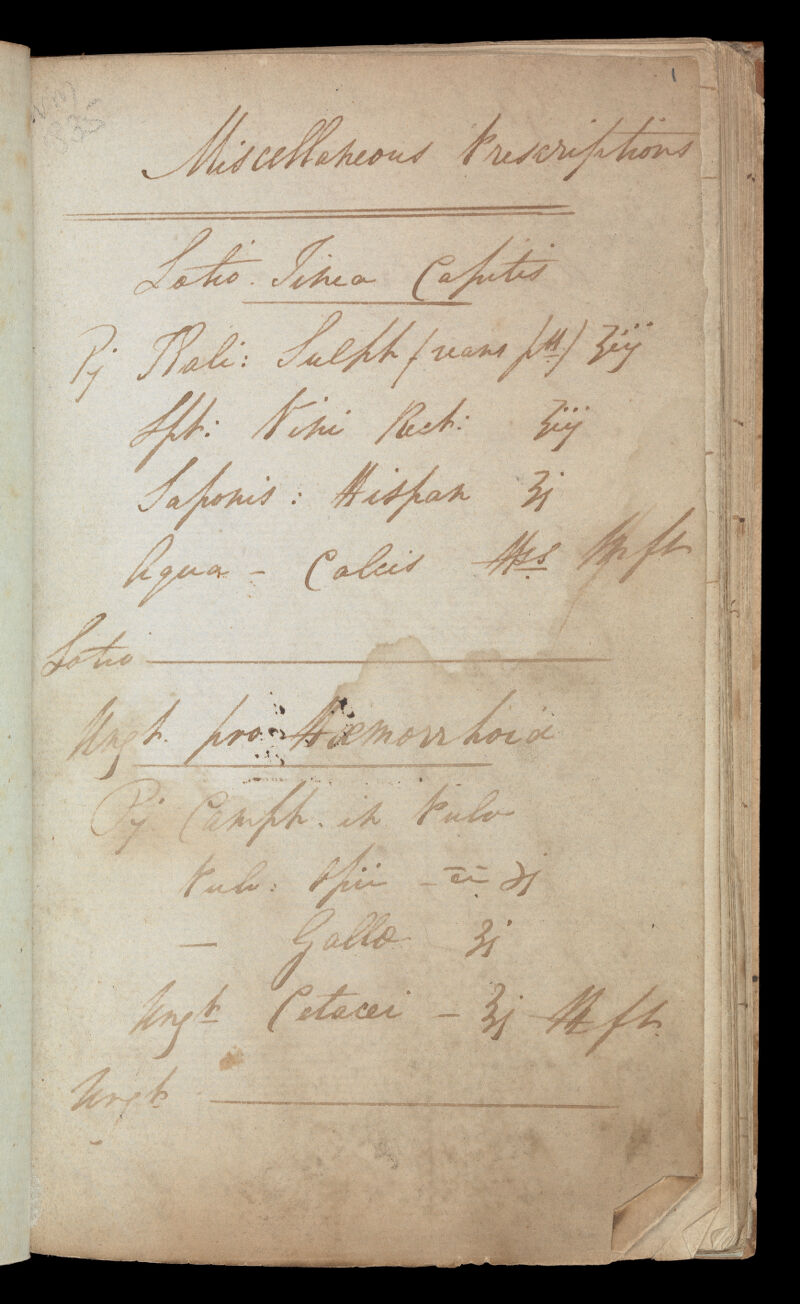 1
Miscellaneous Prescriptions
Lotio. Tinea Capitis
℞ Kali: Sulph / ʒiij
Spt: Vini Rect: ʒiij
Saponis: Hispan ʒj
Aqua - Calcis ℔ss M ft
Lotio
Ungt. pro. Hæmorrhoid
℞ Camph. in Pulv
Pulv: Opii - āā ℈j
— Gallæ ʒj
Ungt Cetacei - ℥j M ft.
Ungt.